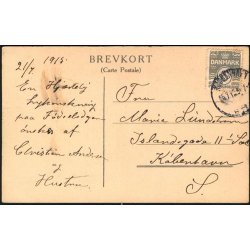 BREVKORT
(Carte Postale)
DANMARK
21/7 1915
En Hjertelig
Lykønskning
paa Fødselsdagen
ønskes af
Christian Andersen
og
Hustru
Fru
Marie Lundstrøm
Islandsgade 11
København
S.